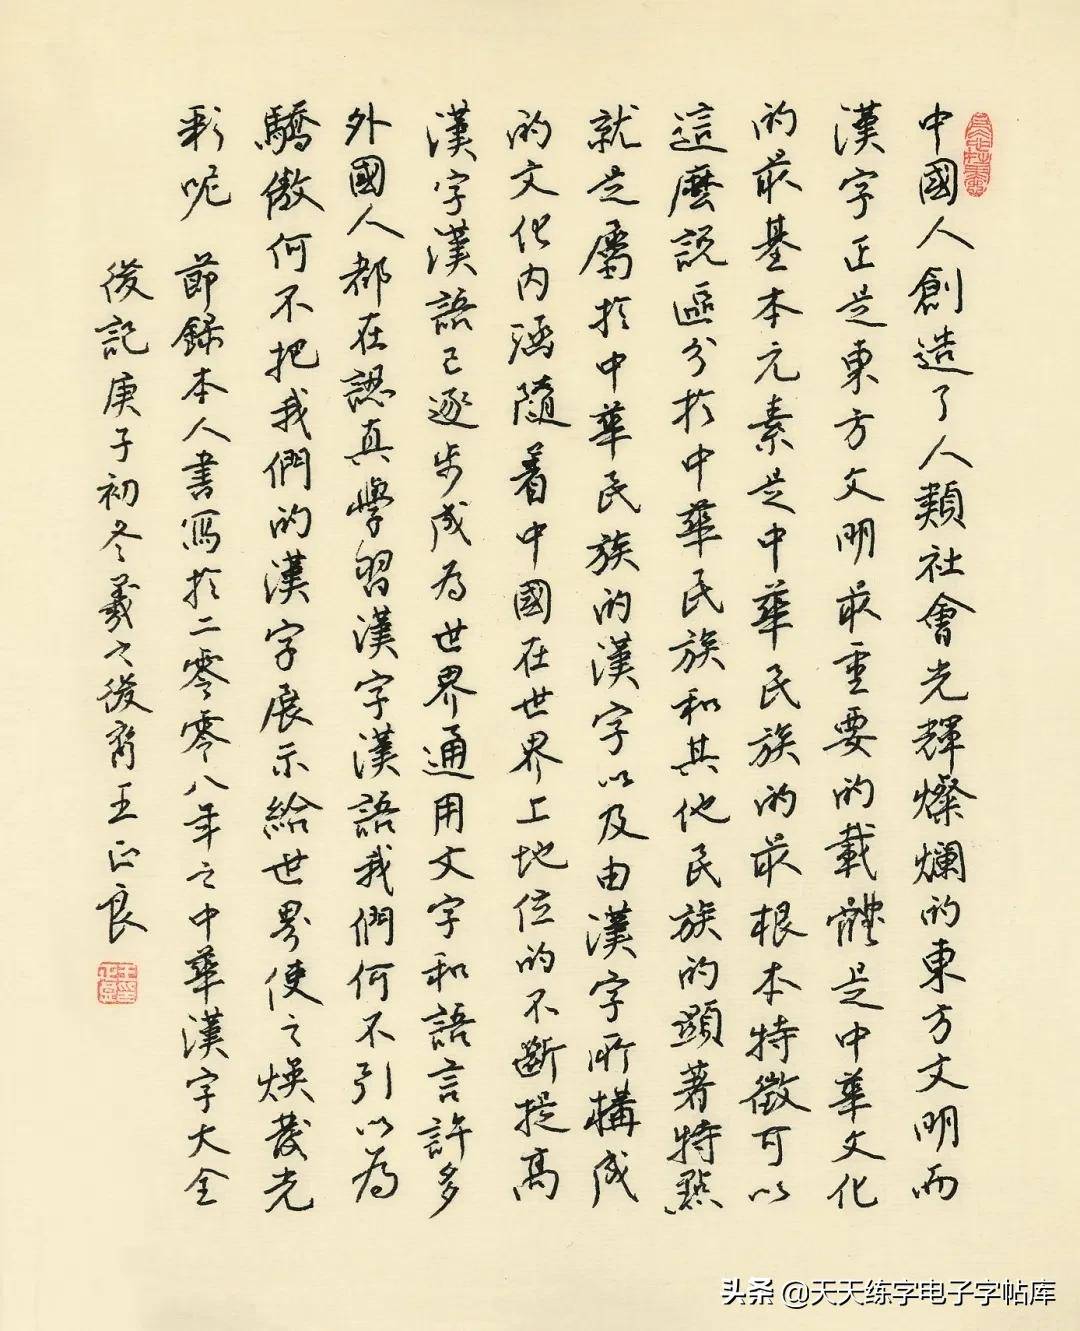 中國人創造了人類社會光輝燦爛的東方文明而
漢字正是東方文明最重要的載體是中華文化
的最基本元素是中華民族的最根本特徵可以
這麼説區分於中華民族和其他民族的顯著特點
就是屬於中華民族的漢字以及由漢字所構成
的文化内涵隨着中國在世界上地位的不斷提高
漢字漢語已逐步成為世界通用文字和語言許多
外國人都在認真學習漢字漢語我們何不引以為
驕傲何不把我們的漢字展示給世界使之焕發光
彩呢 節録本人書寫於二零零八年之中華漢字大全
後記庚子初冬羲之後裔王正良
头条 @天天练字电子字帖库